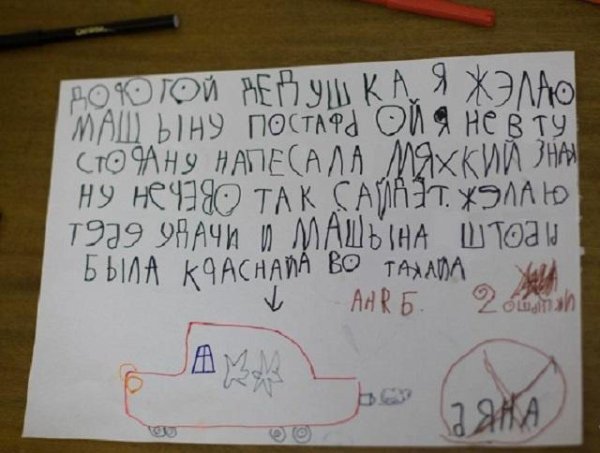 ДОРОГОЙ ДЕДУШКА Я ЖЭЛАЮ
МАШЫНУ ПОСТАРЫ ОЙ Я НЕ В ТУ
СТОРАНУ НАПЕСАЛА МЯХКИЙ ЗНАК
НУ НЕЧЕВО ТАК САЙДЕТ. ЖЭЛАЮ
ТЭБЭ УДАЧИ И МАШЫНА ШТОБЫ
БЫЛА КРАСНАЙА ВО ТАКАЙА
АНЯ Б. 2